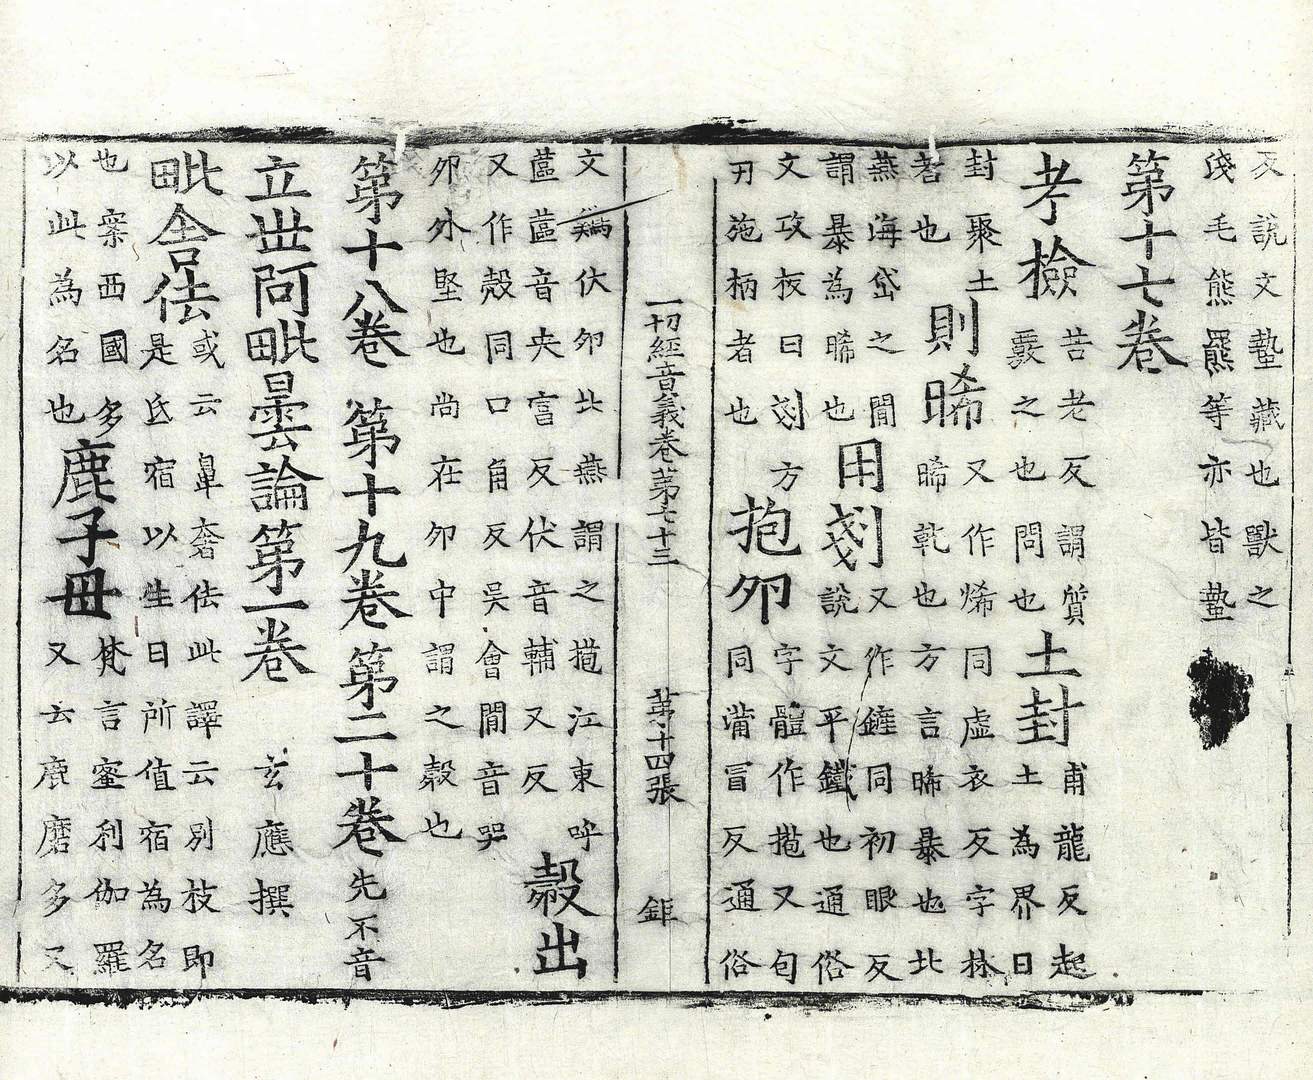 反說文蟄藏也獸之浅毛熊羆等亦皆蟄
第十七卷
考檢苦老反謂質覈之也問也土封甫龍反起土為界曰
封聚土者也則晞又作烯同虛衣反字林晞乾也方言晞暴也北
燕海岱之閒謂暴為晞也用剗又作鏟同初眼反說文平鐵也通俗
文攻板曰剗方刃施柄者也抱卵字體作菢又勾同蒲冒反通俗
一切經音義卷第七十三 第十四張 鉅
文鷄伏卵北燕謂之菢江東呼蓲蓲音央富反伏音輔又反㲉出
又作殼同口角反吳會閒音哭卵外堅也尚在卵中謂之㲉也
第十八卷 第十九卷 第二十卷先不音
立世阿毗曇論第一卷 玄應撰
毗舍佉或云鼻奢佉此譯云別枝即是氐宿以生日所值宿為名
也案西國多以此為名也鹿子母梵言蜜利伽羅又云鹿磨多又